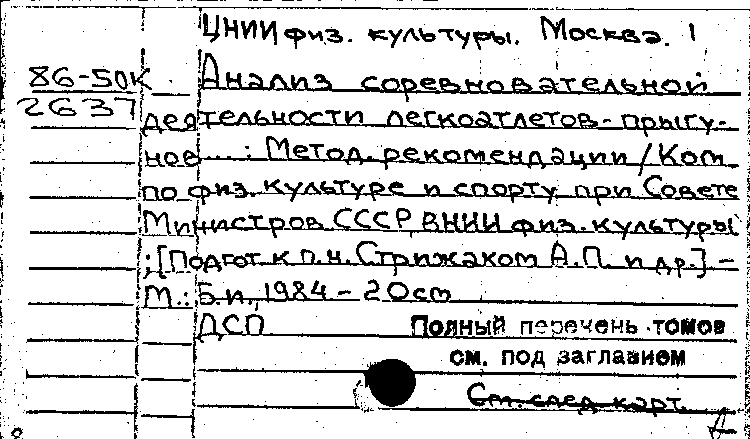 ЦНИИ физ. культуры. Москва. 1
86-50К Анализ соревновательной
2637 деятельности легкоатлетов-прыгу-
нов...: Метод. рекомендации / Ком.
по физ. культуре и спорту при Совете
Министров СССР, ВНИИ физ. культуры
; [Подгот. к.п.н. Стрижаком А.П. и др.] –
М.: Б.и., 1984 – 20 см
ДСП
Полный перечень томов
см. под заглавием
См. след. карт.